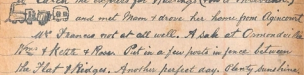 and met Mam & drove her home from Agincourt
Mr Francis not at all well. A sale at Ormond's
Wm & Retta & Rosa. Put in a few posts in fence between
the Flat & Ridges. Another perfect day. Plenty sunshine